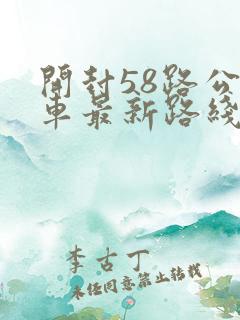 開封58路公
車最新路綫
李古丁
未經同意禁止轉載